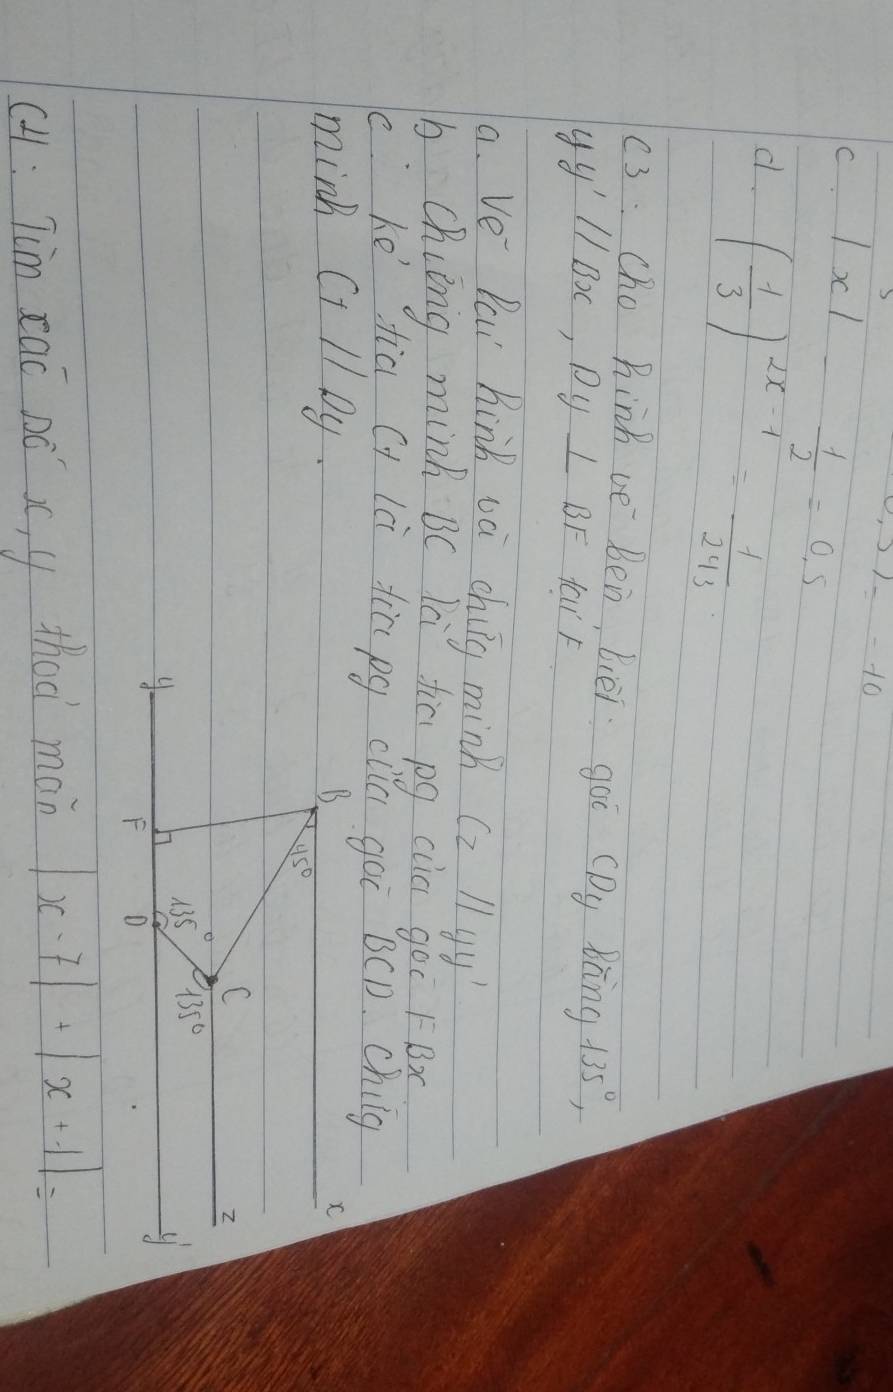 = -10
c. |x| - 1/2 = 0,5
d. (1/3)^2x-1 = 1/243.
C3: Cho hình vẽ bên biết: góc CDy bằng 135°,
yy' // Bx, Dy ⊥ BF tại F
a. Vẽ lại hình và chứng minh Cz // yy'
b. Chứng minh BC là tia pg của góc FBx
c. Kẻ tia Ct là tia pg của góc BCD. Chứng
minh Ct // Dy.
B 45° x
C z
135° 135°
y F D y'
C4: Tìm xác số x, y thoả mãn |x-7| + |x+1| =